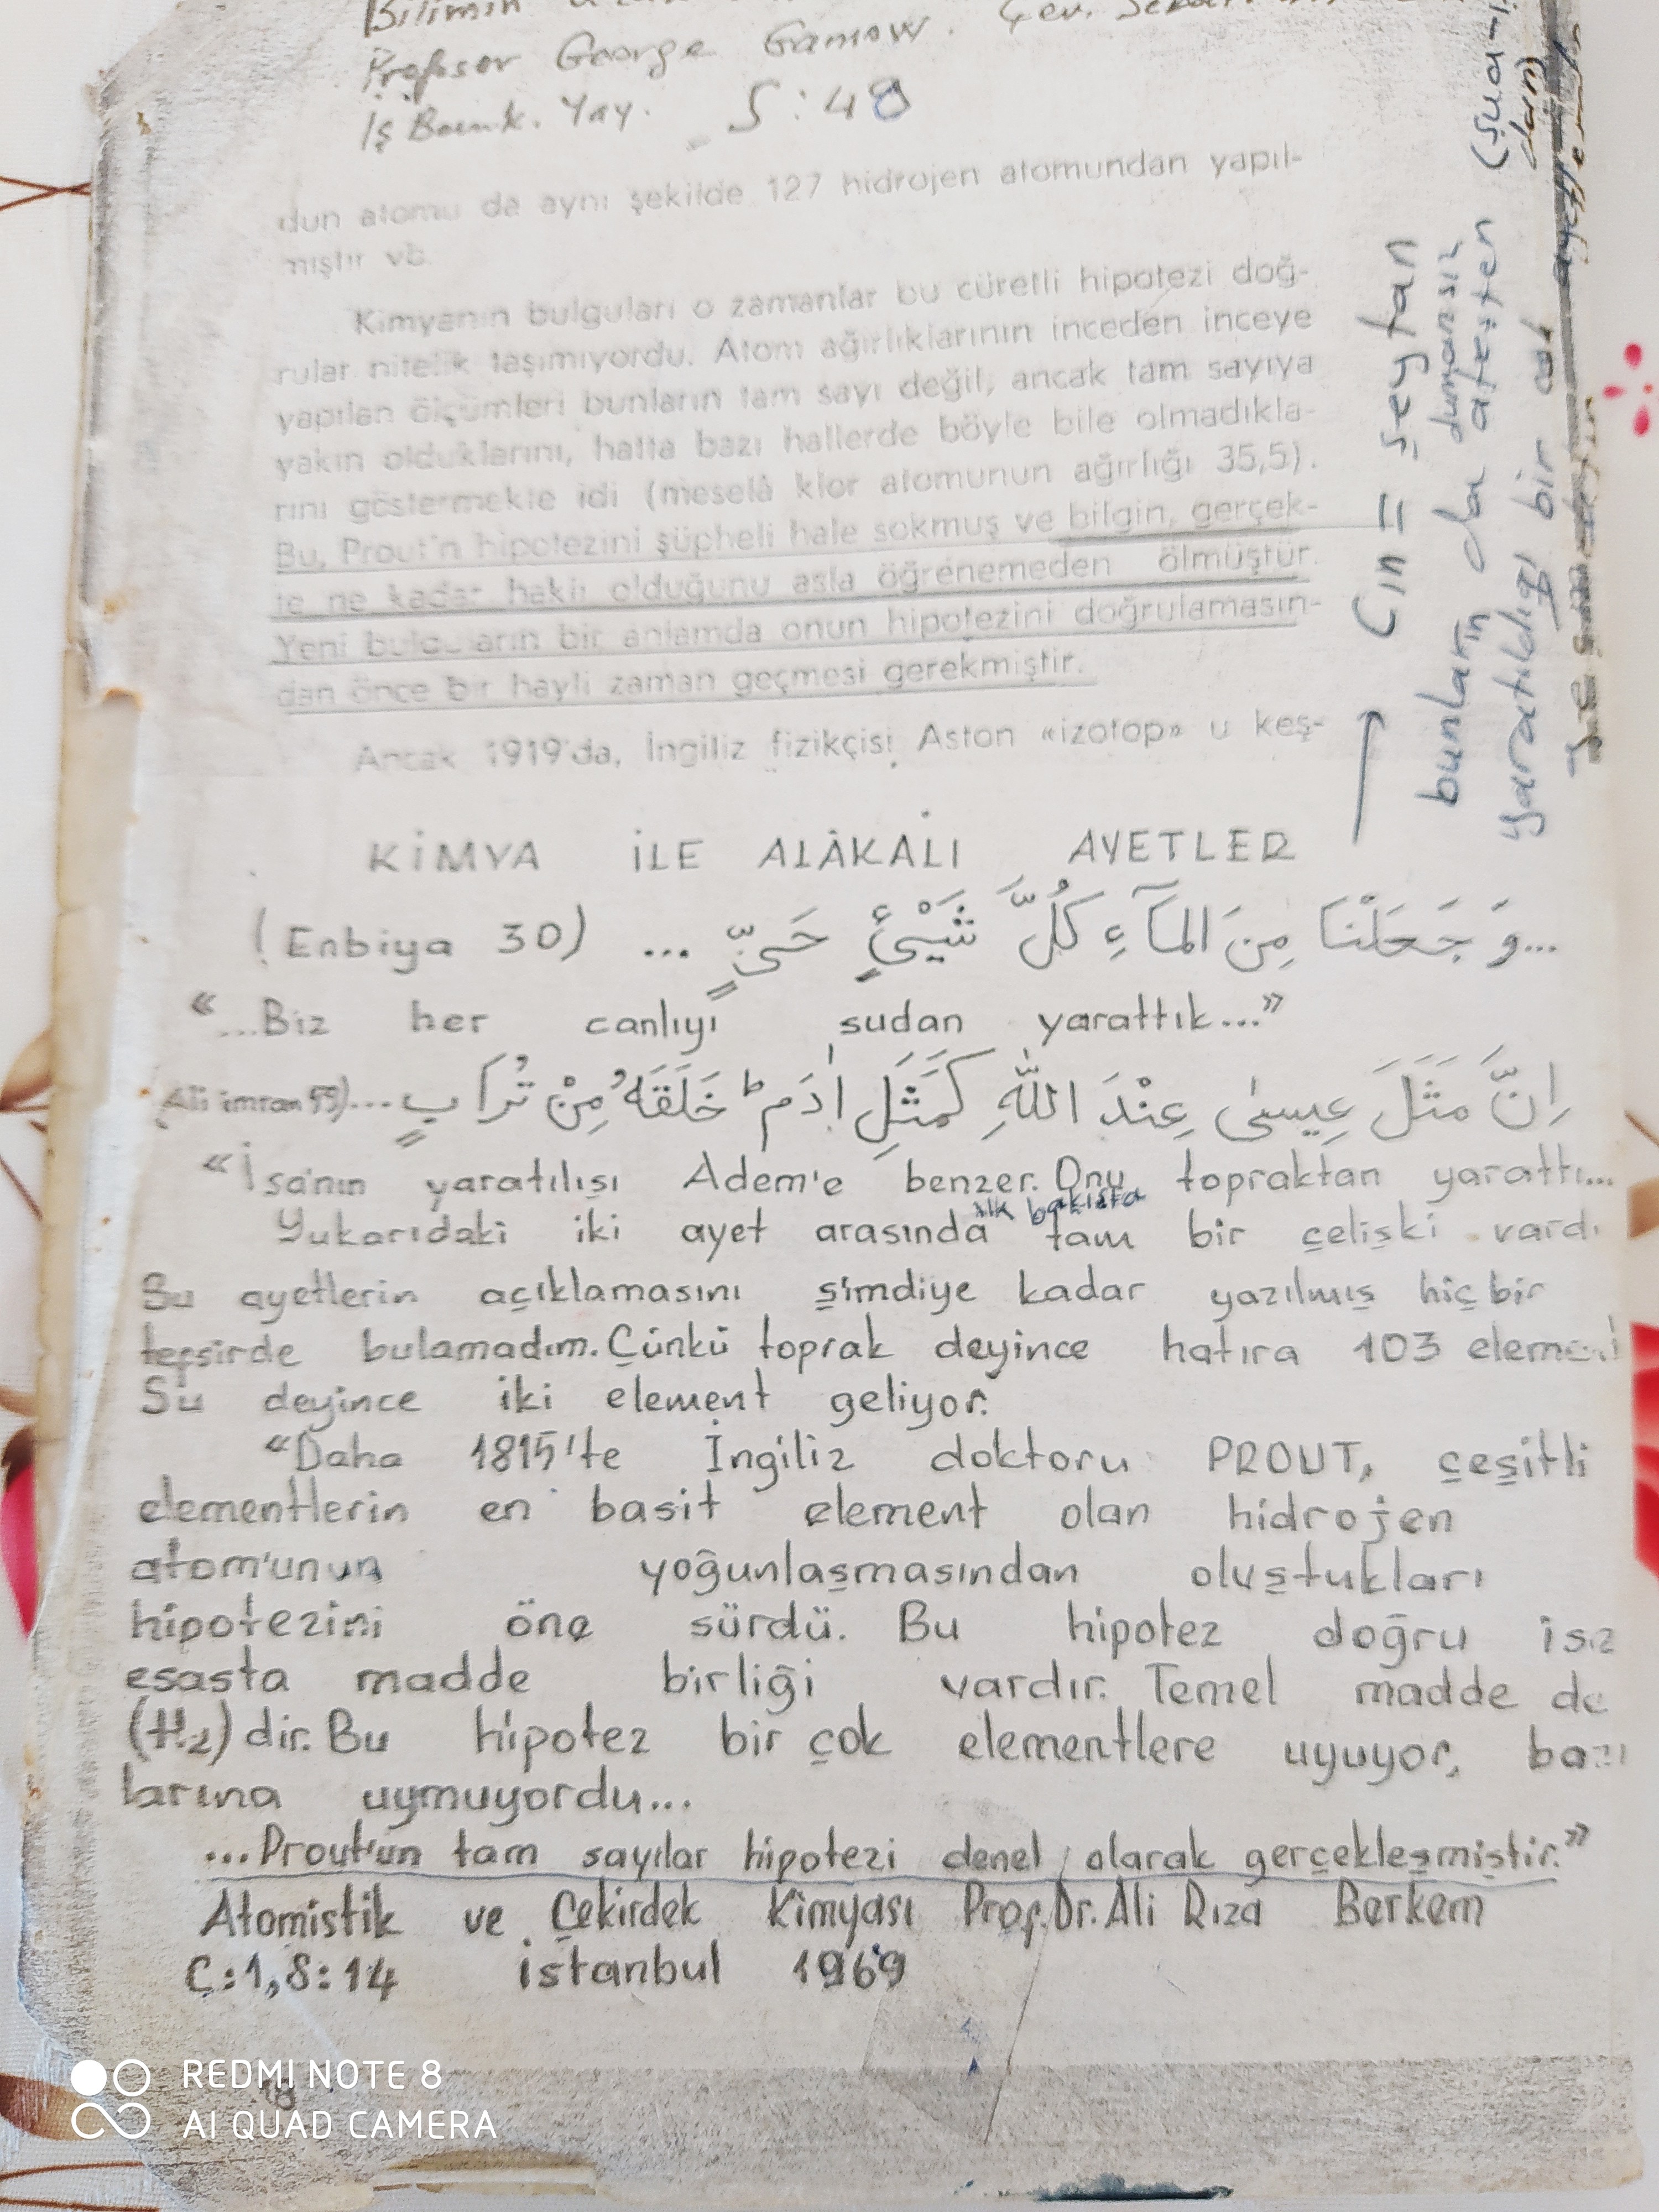 Bilimin
Profesor George Gamow. Çev.
İş Bank. Yay. S:48
dun atomu da aynı şekilde 127 hidrojen atomundan yapıl-
mıştır vb.
Kimyanın bulguları o zamanlar bu cüretli hipotezi doğ-
rular nitelik taşımıyordu. Atom ağırlıklarının inceden inceye
yapılan ölçümleri bunların tam sayı değil, ancak tam sayıya
yakın olduklarını, hatta bazı hallerde böyle bile olmadıkla-
rını göstermekte idi (meselâ klor atomunun ağırlığı 35,5).
Bu, Prout'n hipotezini şüpheli hale sokmuş ve bilgin, gerçek-
te ne kadar haklı olduğunu asla öğrenemeden ölmüştür.
Yeni bulguların bir anlamda onun hipotezini doğrulamasın-
dan önce bir hayli zaman geçmesi gerekmiştir.
Ancak 1919'da, İngiliz fizikçisi Aston «izotop» u keş-
KİMYA İLE ALÂKALI AYETLER
...وَ جَعَلْنَا مِنَ المَآءِ كُلَّ شَيْئٍ حَيٍّ ... (Enbiya 30)
“...Biz her canlıyı sudan yarattık...”
اِنَّ مَثَلَ عِيسىٰ عِنْدَ اللّٰهِ كَمَثَلِ اٰدَمَ ط خَلَقَهُ مِنْ تُرَابٍ ... (Ali imran 59)
“İsa'nın yaratılışı Adem'e benzer. Onu topraktan yarattı...
Yukarıdaki iki ayet arasında ilk bakışta tam bir çelişki vardı
Bu ayetlerin açıklamasını şimdiye kadar yazılmış hiç bir
tefsirde bulamadım. Çünkü toprak deyince hatıra 103 element
Su deyince iki element geliyor.
“Daha 1815'te İngiliz doktoru PROUT, çeşitli
elementlerin en basit element olan hidrojen
atom'unun yoğunlaşmasından oluştukları
hipotezini öne sürdü. Bu hipotez doğru ise
esasta madde birliği vardır. Temel madde de
(H2) dir. Bu hipotez bir çok elementlere uyuyor, bazı
larına uymuyordu...
...Prout'un tam sayılar hipotezi denel olarak gerçekleşmiştir.”
Atomistik ve Çekirdek Kimyası Prof. Dr. Ali Rıza Berkem
C:1, S:14 İstanbul 1969
18
Cin = şeytan
bunların da dumansız ateşten (şua-
dan)
yaratıldığı bir çok
ayetlerde
REDMI NOTE 8
AI QUAD CAMERA